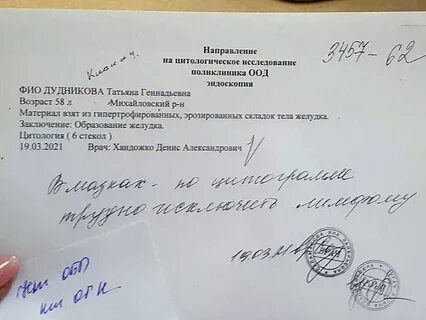 Направление
на цитологическое исследование
поликлиника ООД
эндоскопия
3457-62
ФИО ДУДНИКОВА Татьяна Геннадьевна
Возраст 58 л Михайловский р-н
Материал взят из гипертрофированных, эрозированных складок тела желудка.
Заключение: Образование желудка.
Цитология ( 6 стекол )
19.03.2021 Врач: Хандожко Денис Александрович
В мазках - по цитограмме
трудно исключить лимфому
19.03.21